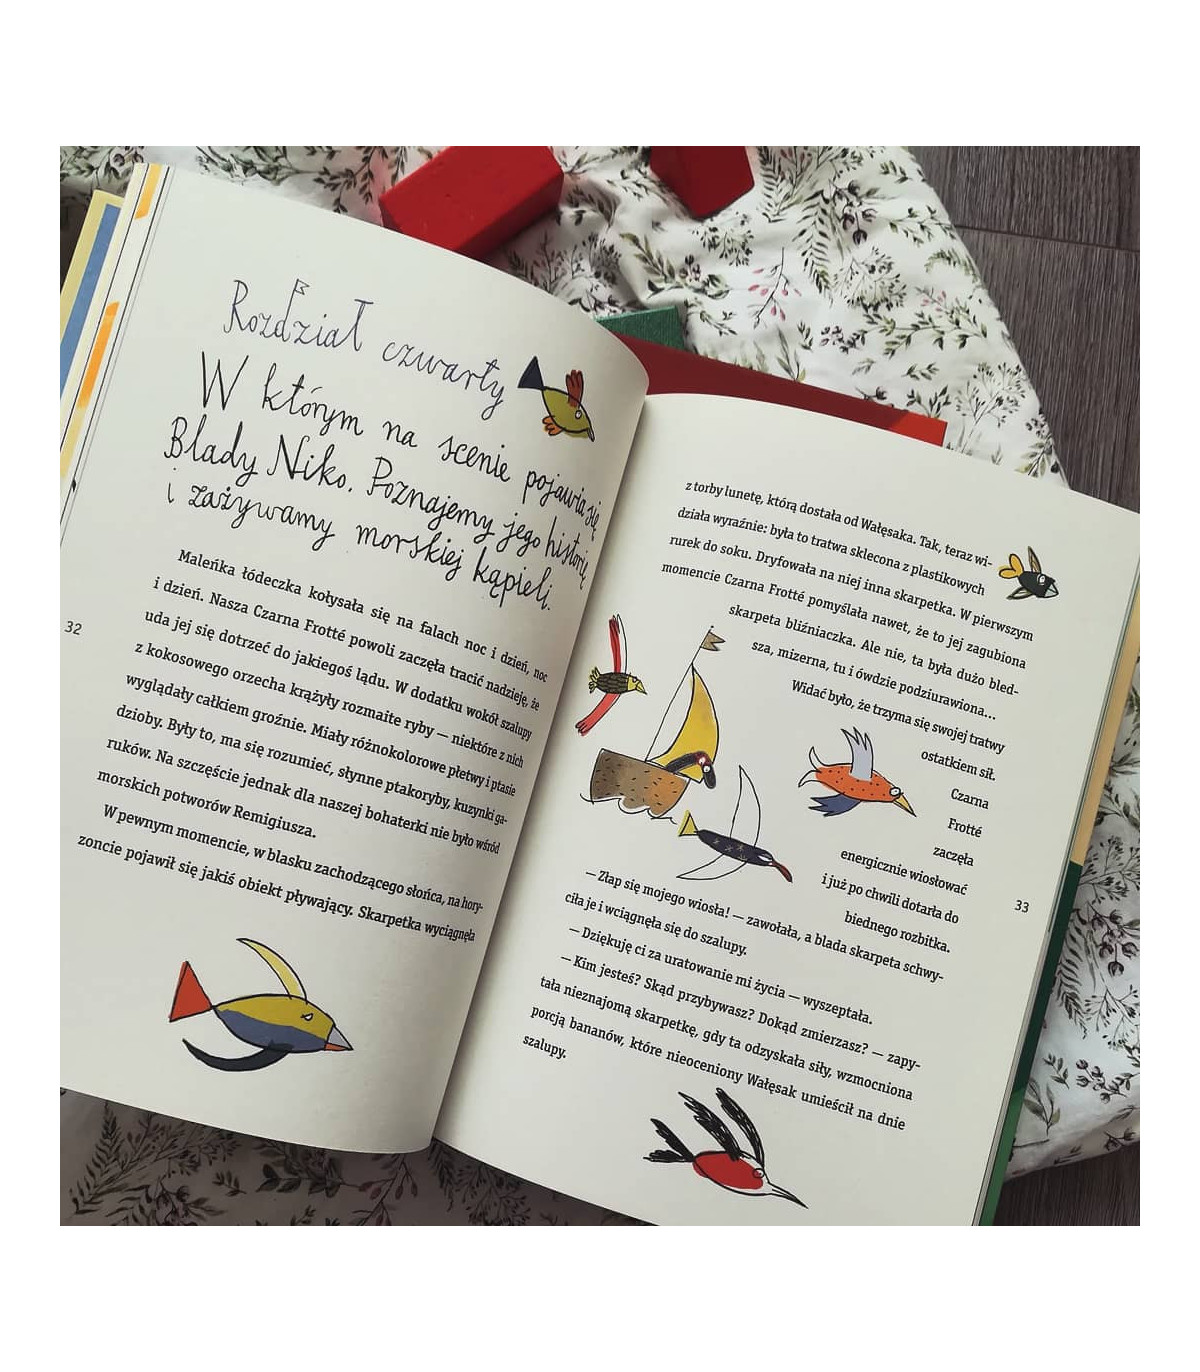 Rozdział czwarty
W którym na scenie pojawia się
Blady Niko. Poznajemy jego historię
i zażywamy morskiej kąpieli.
Maleńka łódeczka kołysała się na falach noc i dzień, noc
i dzień. Nasza Czarna Frotté powoli zaczęła tracić nadzieję, że
uda jej się dotrzeć do jakiegoś lądu. W dodatku wokół szalupy
z kokosowego orzecha krążyły rozmaite ryby — niektóre z nich
wyglądały całkiem groźnie. Miały różnokolorowe płetwy i ptasie
dzioby. Były to, ma się rozumieć, słynne ptakoryby, kuzynki ga-
ruków. Na szczęście jednak dla naszej bohaterki nie było wśród
morskich potworów Remigiusza.
W pewnym momencie, w blasku zachodzącego słońca, na hory-
zoncie pojawił się jakiś obiekt pływający. Skarpetka wyciągnęła
32
z torby lunetę, którą dostała od Wałęsaka. Tak, teraz wi-
działa wyraźnie: była to tratwa sklecona z plastikowych
rurek do soku. Dryfowała na niej inna skarpetka. W pierwszym
momencie Czarna Frotté pomyślała nawet, że to jej zagubiona
skarpeta bliźniaczka. Ale nie, ta była dużo bled-
sza, mizerna, tu i ówdzie podziurawiona...
Widać było, że trzyma się swojej tratwy
ostatkiem sił.
Czarna
Frotté
zaczęła
energicznie wiosłować
i już po chwili dotarła do
biednego rozbitka.
— Złap się mojego wiosła! — zawołała, a blada skarpeta schwy-
ciła je i wciągnęła się do szalupy.
— Dziękuję ci za uratowanie mi życia — wyszeptała.
— Kim jesteś? Skąd przybywasz? Dokąd zmierzasz? — zapy-
tała nieznajomą skarpetkę, gdy ta odzyskała siły, wzmocniona
porcją bananów, które nieoceniony Wałęsak umieścił na dnie
szalupy.
33